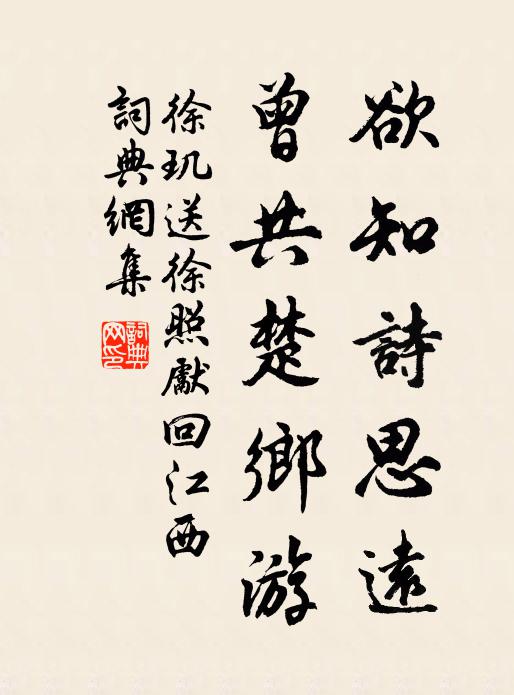 欲知詩思遠
曾共楚鄉游
徐玑送徐照獻回江西
詞典網集
詞典網印